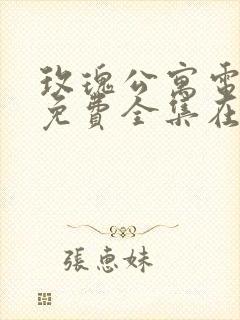 玫瑰公寓電
免費全集在
張惠妹